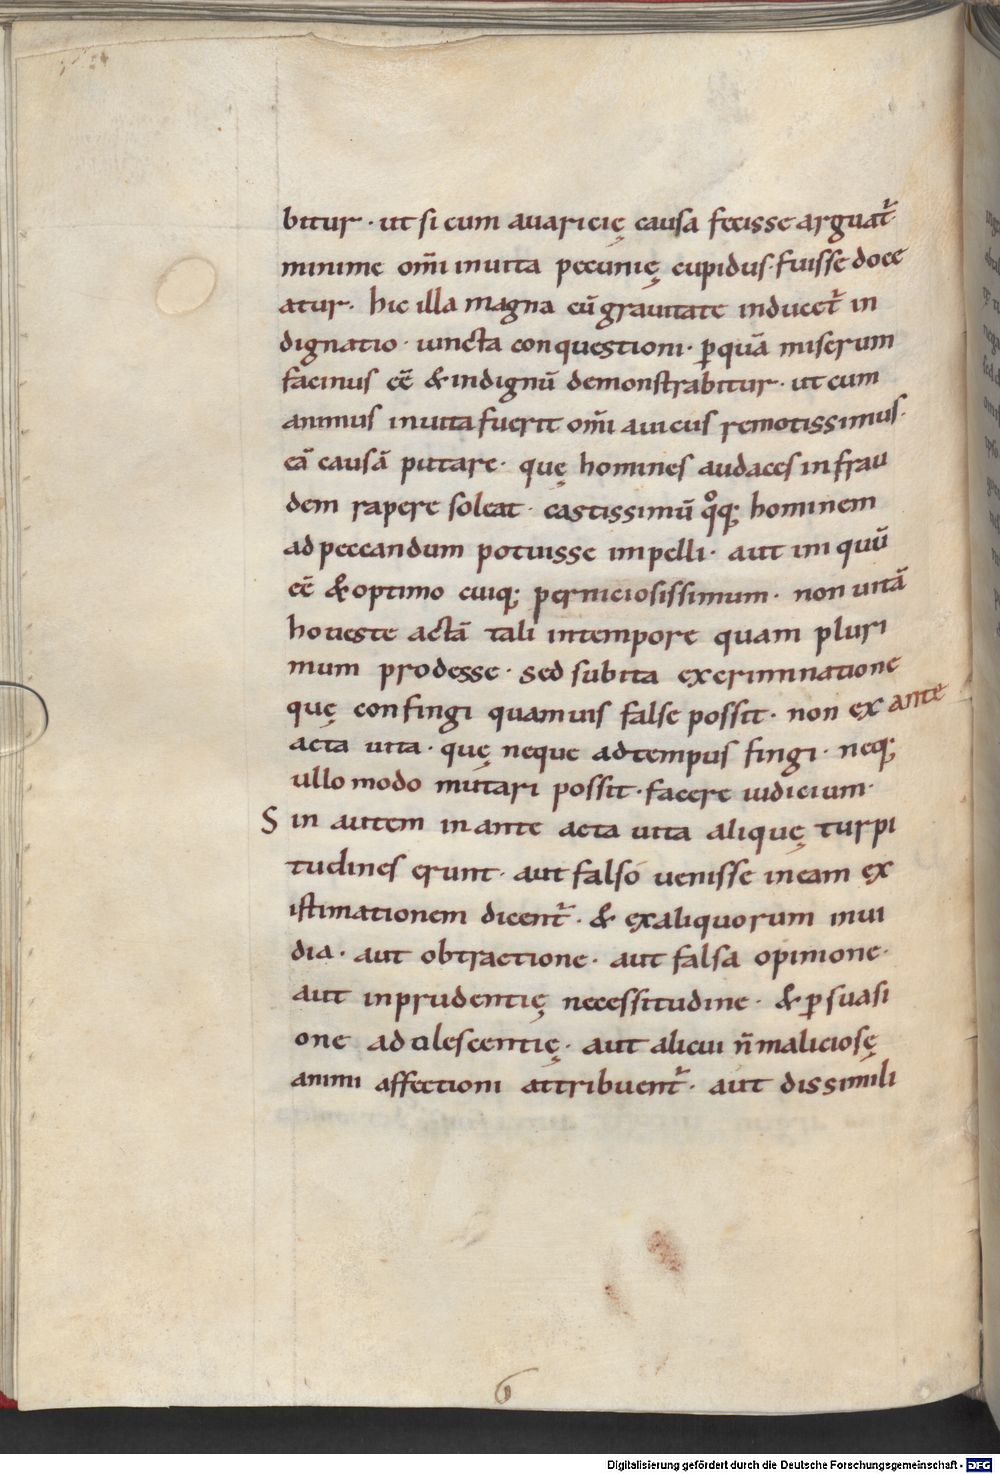 bitur · ut si cum auaricię causa fecisse arguat᷑
minime om̅i in uita pecunię cupidus · fuisse doce
atur · hic illa magna cū grauitate inducet᷑ in
dignatio · iuncta conquestioni · ꝑquā miserum
facinus eē & indignū demonstrabitur · ut cum
animus in uita fuerit om̅i a uicus remotissimus ·
eā causā putare · quę homines audaces in frau
dem rapere soleat · castissimū qͦq; hominem
ad peccandum potuisse impelli · aut iniquū
eē & optimo cuiq; perniciosissimum · non uitā
honeste actā tali in tempore quam pluri
mum prodesse · sed subita ex criminatione
quę confingi quamuis false possit · non ex ante
acta uita · quę neque ad tempus fingi · neq;
ullo modo mutari possit · facere iudicium ·
Sin autem in ante acta uita aliquę turpi
tudines erunt · aut falso uenisse in eam ex
istimationem dicent᷑ · & ex aliquorum inui
dia · aut obtractione · aut falsa opinione ·
aut inprudentię necessitudine · & ꝑsuasi
one adolescentię · aut alicui n̅ maliciosę
animi affectioni attribuent᷑ · aut dissimili
6
Digitalisierung gefördert durch die Deutsche Forschungsgemeinschaft - DFG